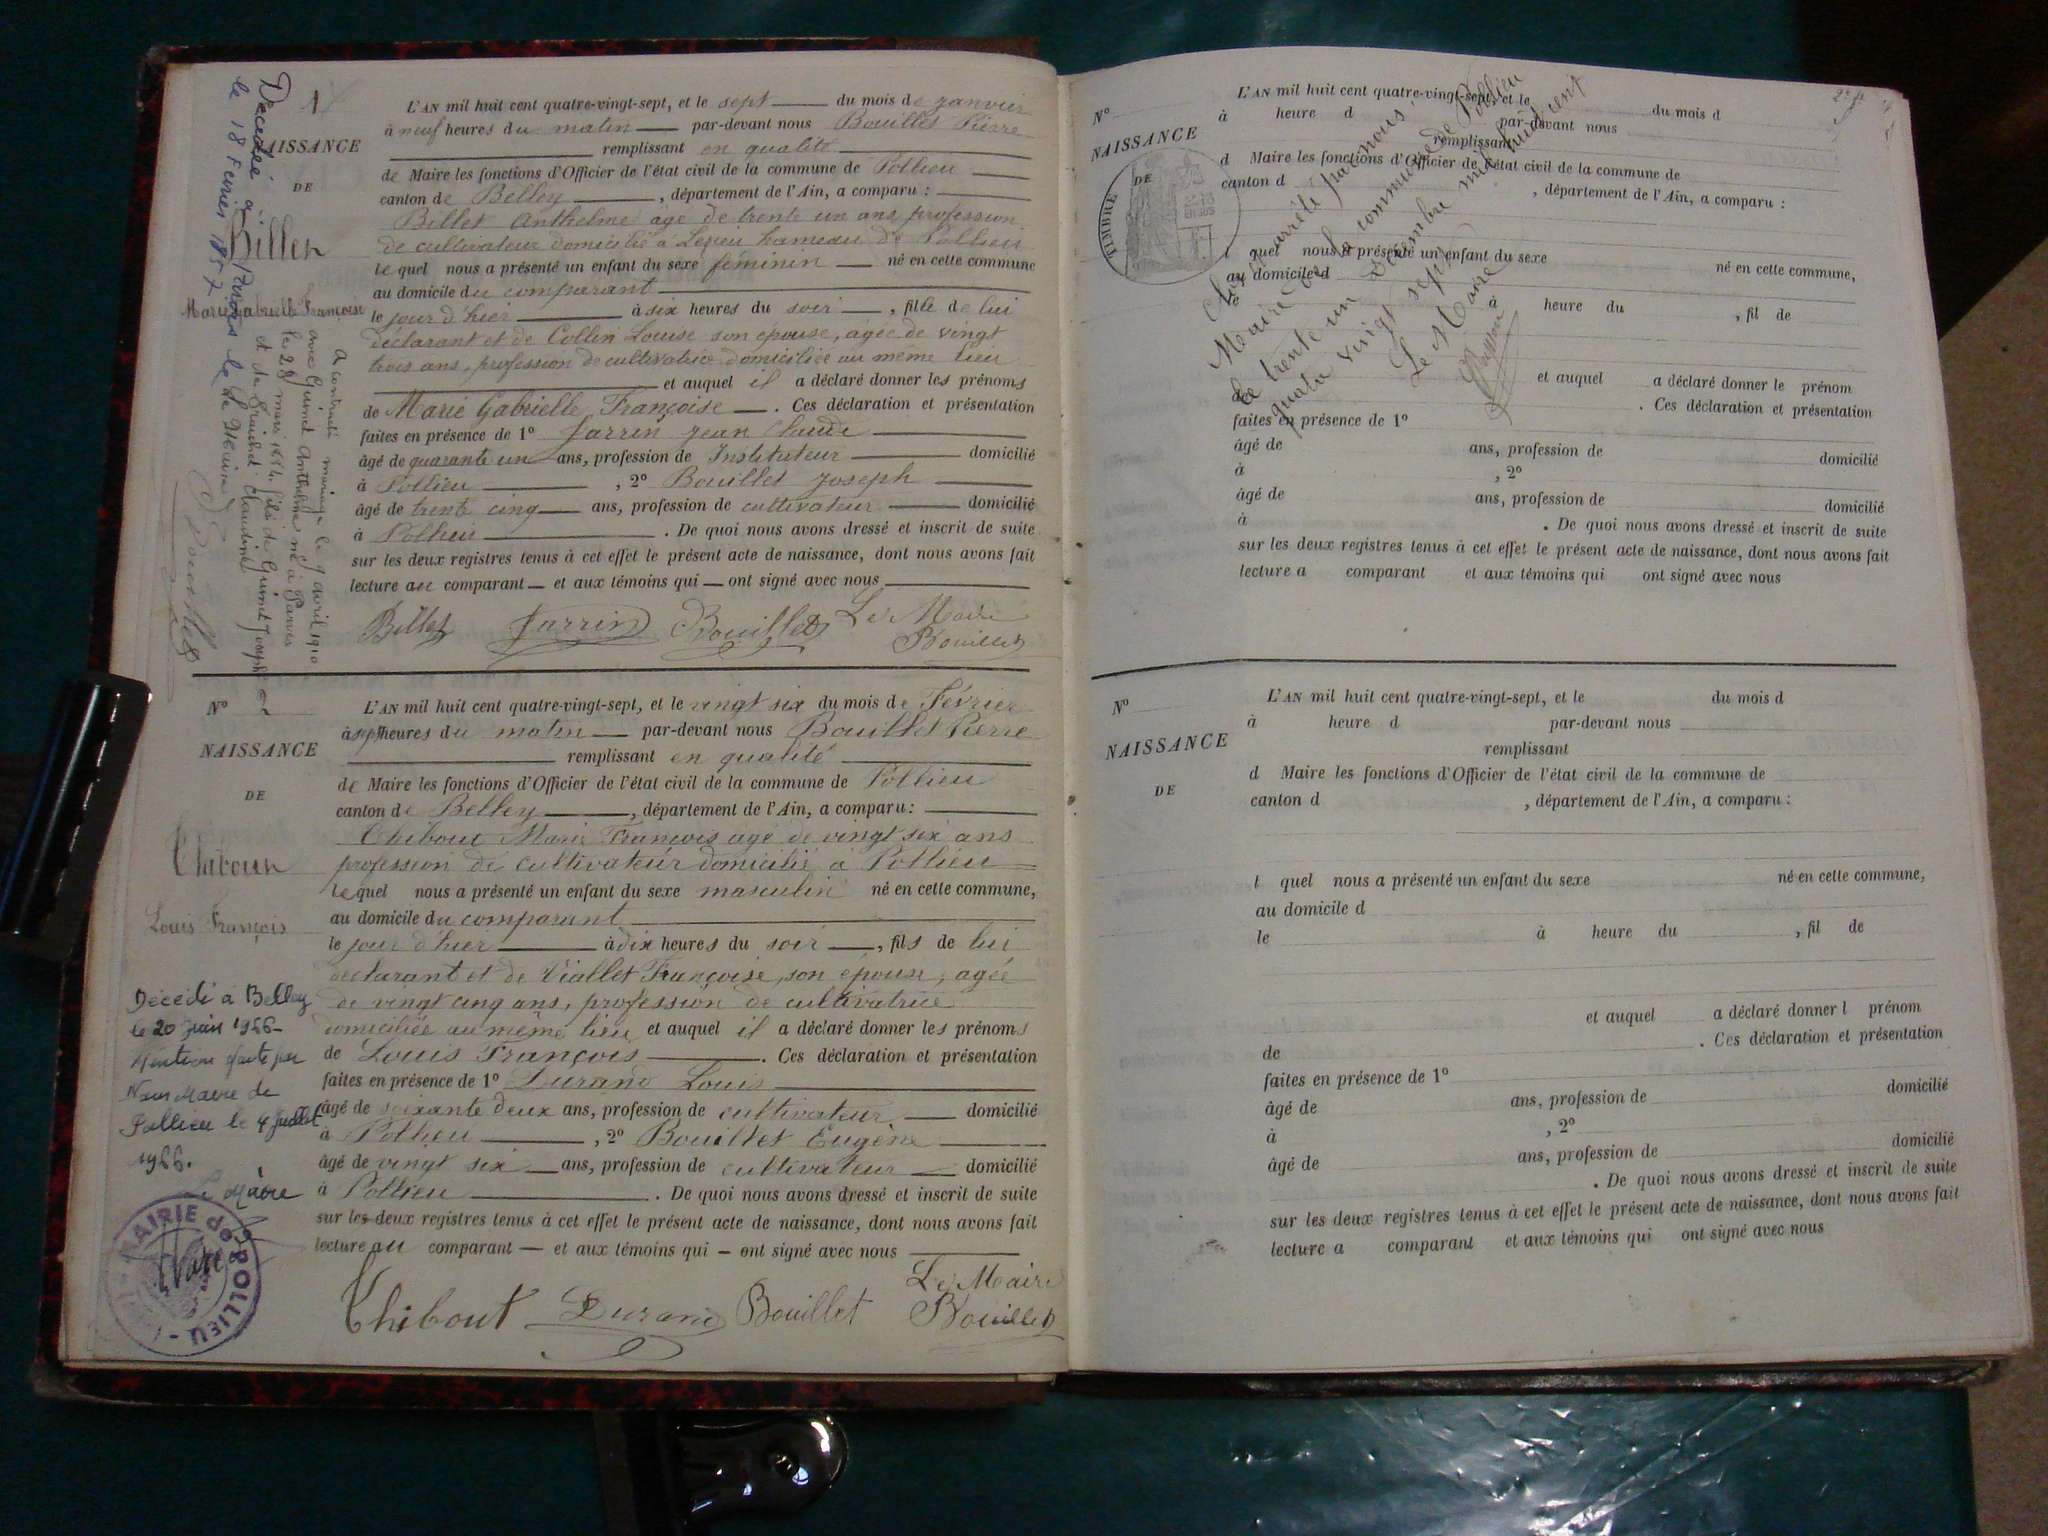 1
NAISSANCE
DE
Billet
Marie Gabrielle Françoise
L'AN mil huit cent quatre-vingt-sept, et le sept du mois de janvier
à neuf heures du matin par-devant nous Bouillet Pierre
remplissant en qualité
de Maire les fonctions d'Officier de l'état civil de la commune de Pollieu
canton de Belley, département de l'Ain, a comparu :
Billet Anthelme agé de trente un ans profession
de cultivateur domicilié à hameau de Pollieu
lequel nous a présenté un enfant du sexe féminin né en cette commune
au domicile du comparant
le jour d'hier à six heures du soir, fille de lui
déclarant et de Collin Louise son épouse, agée de vingt
trois ans, profession de cultivatrice domiciliée au même lieu
et auquel il a déclaré donner les prénoms
de Marie Gabrielle Françoise. Ces déclaration et présentation
faites en présence de 1º Jarrin Jean Claude
âgé de quarante un ans, profession de Instituteur domicilié
à Pollieu, 2º Bouillet Joseph
âgé de trente cinq ans, profession de cultivateur domicilié
à Pollieu. De quoi nous avons dressé et inscrit de suite
sur les deux registres tenus à cet effet le présent acte de naissance, dont nous avons fait
lecture au comparant et aux témoins qui ont signé avec nous
Billet Jarrin Bouillet Le Maire
Bouillet
Décédé à
le 18 Février 1957
A contracté mariage le 9 avril 1910
avec Guinet Anthelme né à Parves
le 28 mars fils de Guinet Joseph
et de Claudine
Le Maire
Nº
NAISSANCE
DE
Thibout
Louis François
Décédé à Belley
le 20 juin 1966
Mention faite par
Nous Maire de
Pollieu le 4 juillet
1966.
Le Maire
MAIRIE de POLLIEU
L'AN mil huit cent quatre-vingt-sept, et le vingt six du mois de Février
à sept heures du matin par-devant nous Bouillet Pierre
remplissant en qualité
de Maire les fonctions d'Officier de l'état civil de la commune de Pollieu
canton de Belley, département de l'Ain, a comparu :
Thibout Marie François agé de vingt six ans
profession de cultivateur domicilié à Pollieu
lequel nous a présenté un enfant du sexe masculin né en cette commune,
au domicile du comparant
le jour d'hier à dix heures du soir, fils de lui
déclarant et de Viallet Françoise, son épouse, agée
de vingt cinq ans, profession de cultivatrice
domiciliée au même lieu et auquel il a déclaré donner les prénoms
de Louis François. Ces déclaration et présentation
faites en présence de 1º Durand Louis
âgé de soixante deux ans, profession de cultivateur domicilié
à Pollieu, 2º Bouillet Eugène
âgé de vingt six ans, profession de cultivateur domicilié
à Pollieu. De quoi nous avons dressé et inscrit de suite
sur les deux registres tenus à cet effet le présent acte de naissance, dont nous avons fait
lecture au comparant et aux témoins qui ont signé avec nous
Thibout Durand Bouillet Le Maire
Bouillet
Nº
NAISSANCE
DE
TIMBRE
L'AN mil huit cent quatre-vingt-sept, et le du mois d
à heure d par-devant nous
remplissant
d Maire les fonctions d'Officier de l'état civil de la commune de
canton d , département de l'Ain, a comparu :
l quel nous a présenté un enfant du sexe né en cette commune,
au domicile d
le à heure du , fil de
et auquel a déclaré donner le prénom
de . Ces déclaration et présentation
faites en présence de 1º
âgé de ans, profession de domicilié
à , 2º
âgé de ans, profession de domicilié
à . De quoi nous avons dressé et inscrit de suite
sur les deux registres tenus à cet effet le présent acte de naissance, dont nous avons fait
lecture a comparant et aux témoins qui ont signé avec nous
Clos et arrêté par nous,
Maire de la commune de Pollieu
le trente un décembre mil huit cent
quatre vingt sept
Le Maire
Nº
NAISSANCE
DE
L'AN mil huit cent quatre-vingt-sept, et le du mois d
à heure d par-devant nous
remplissant
d Maire les fonctions d'Officier de l'état civil de la commune de
canton d , département de l'Ain, a comparu :
l quel nous a présenté un enfant du sexe né en cette commune,
au domicile d
le à heure du , fil de
et auquel a déclaré donner l prénom
de . Ces déclaration et présentation
faites en présence de 1º
âgé de ans, profession de domicilié
à , 2º
âgé de ans, profession de domicilié
. De quoi nous avons dressé et inscrit de suite
sur les deux registres tenus à cet effet le présent acte de naissance, dont nous avons fait
lecture a comparant et aux témoins qui ont signé avec nous